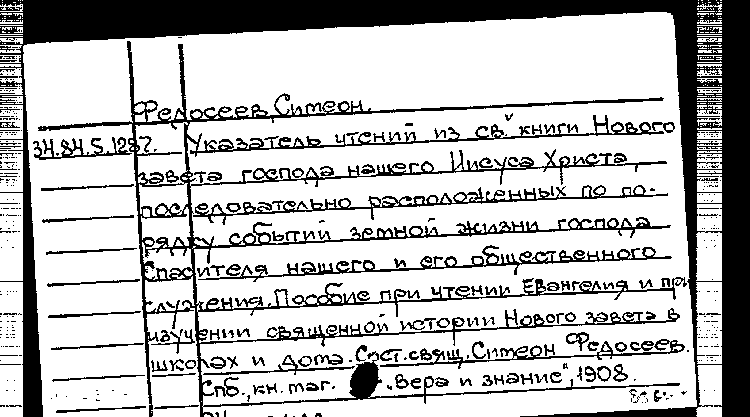 Федосеев, Симеон.
34.84.5.1287. Указатель чтений из св. книги Нового
завета господа нашего Иисуса Христа,
последовательно расположенных по по-
рядку событий земной жизни господа
Спасителя нашего и его общественного
служения. Пособие при чтении Евангелия и при
изучении священной истории Нового завета в
школах и дома. Сост. свящ. Симеон Федосеев.
Спб., кн. маг. „Вера и знание", 1908.